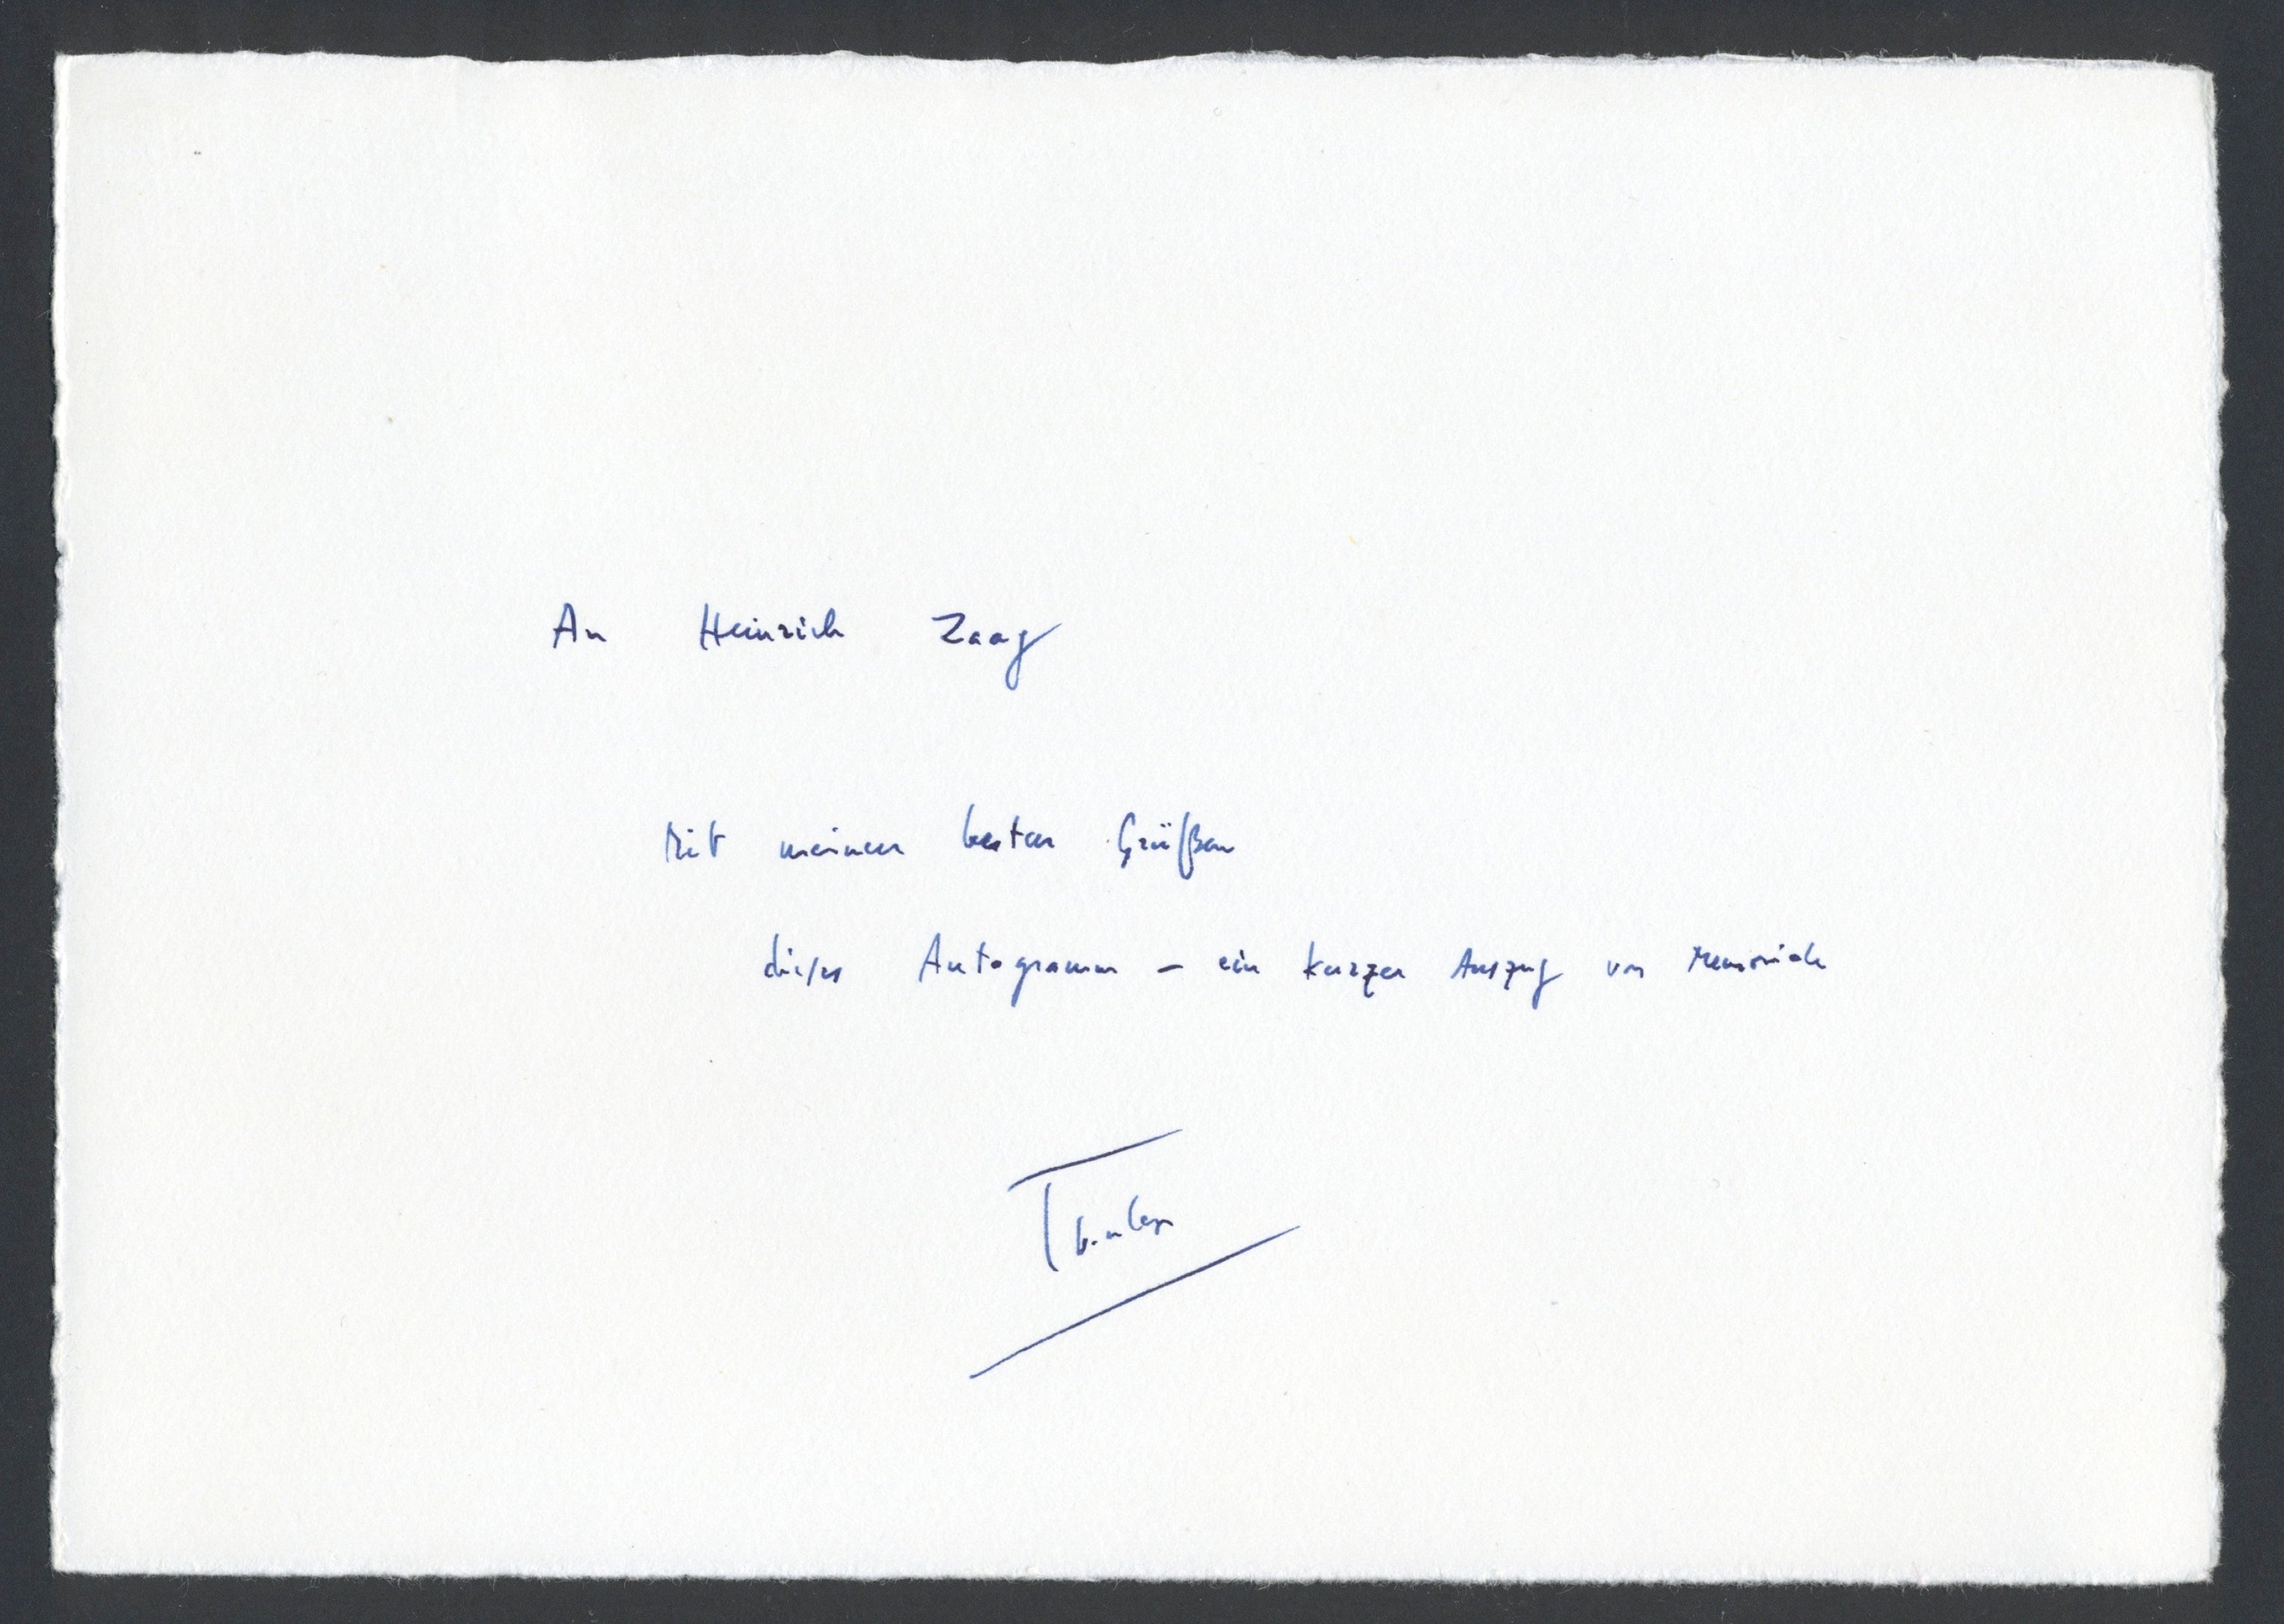 An Heinrich Zaag
Mit meinen besten Grüßen
dieses Autogramm – ein kurzer Auszug von